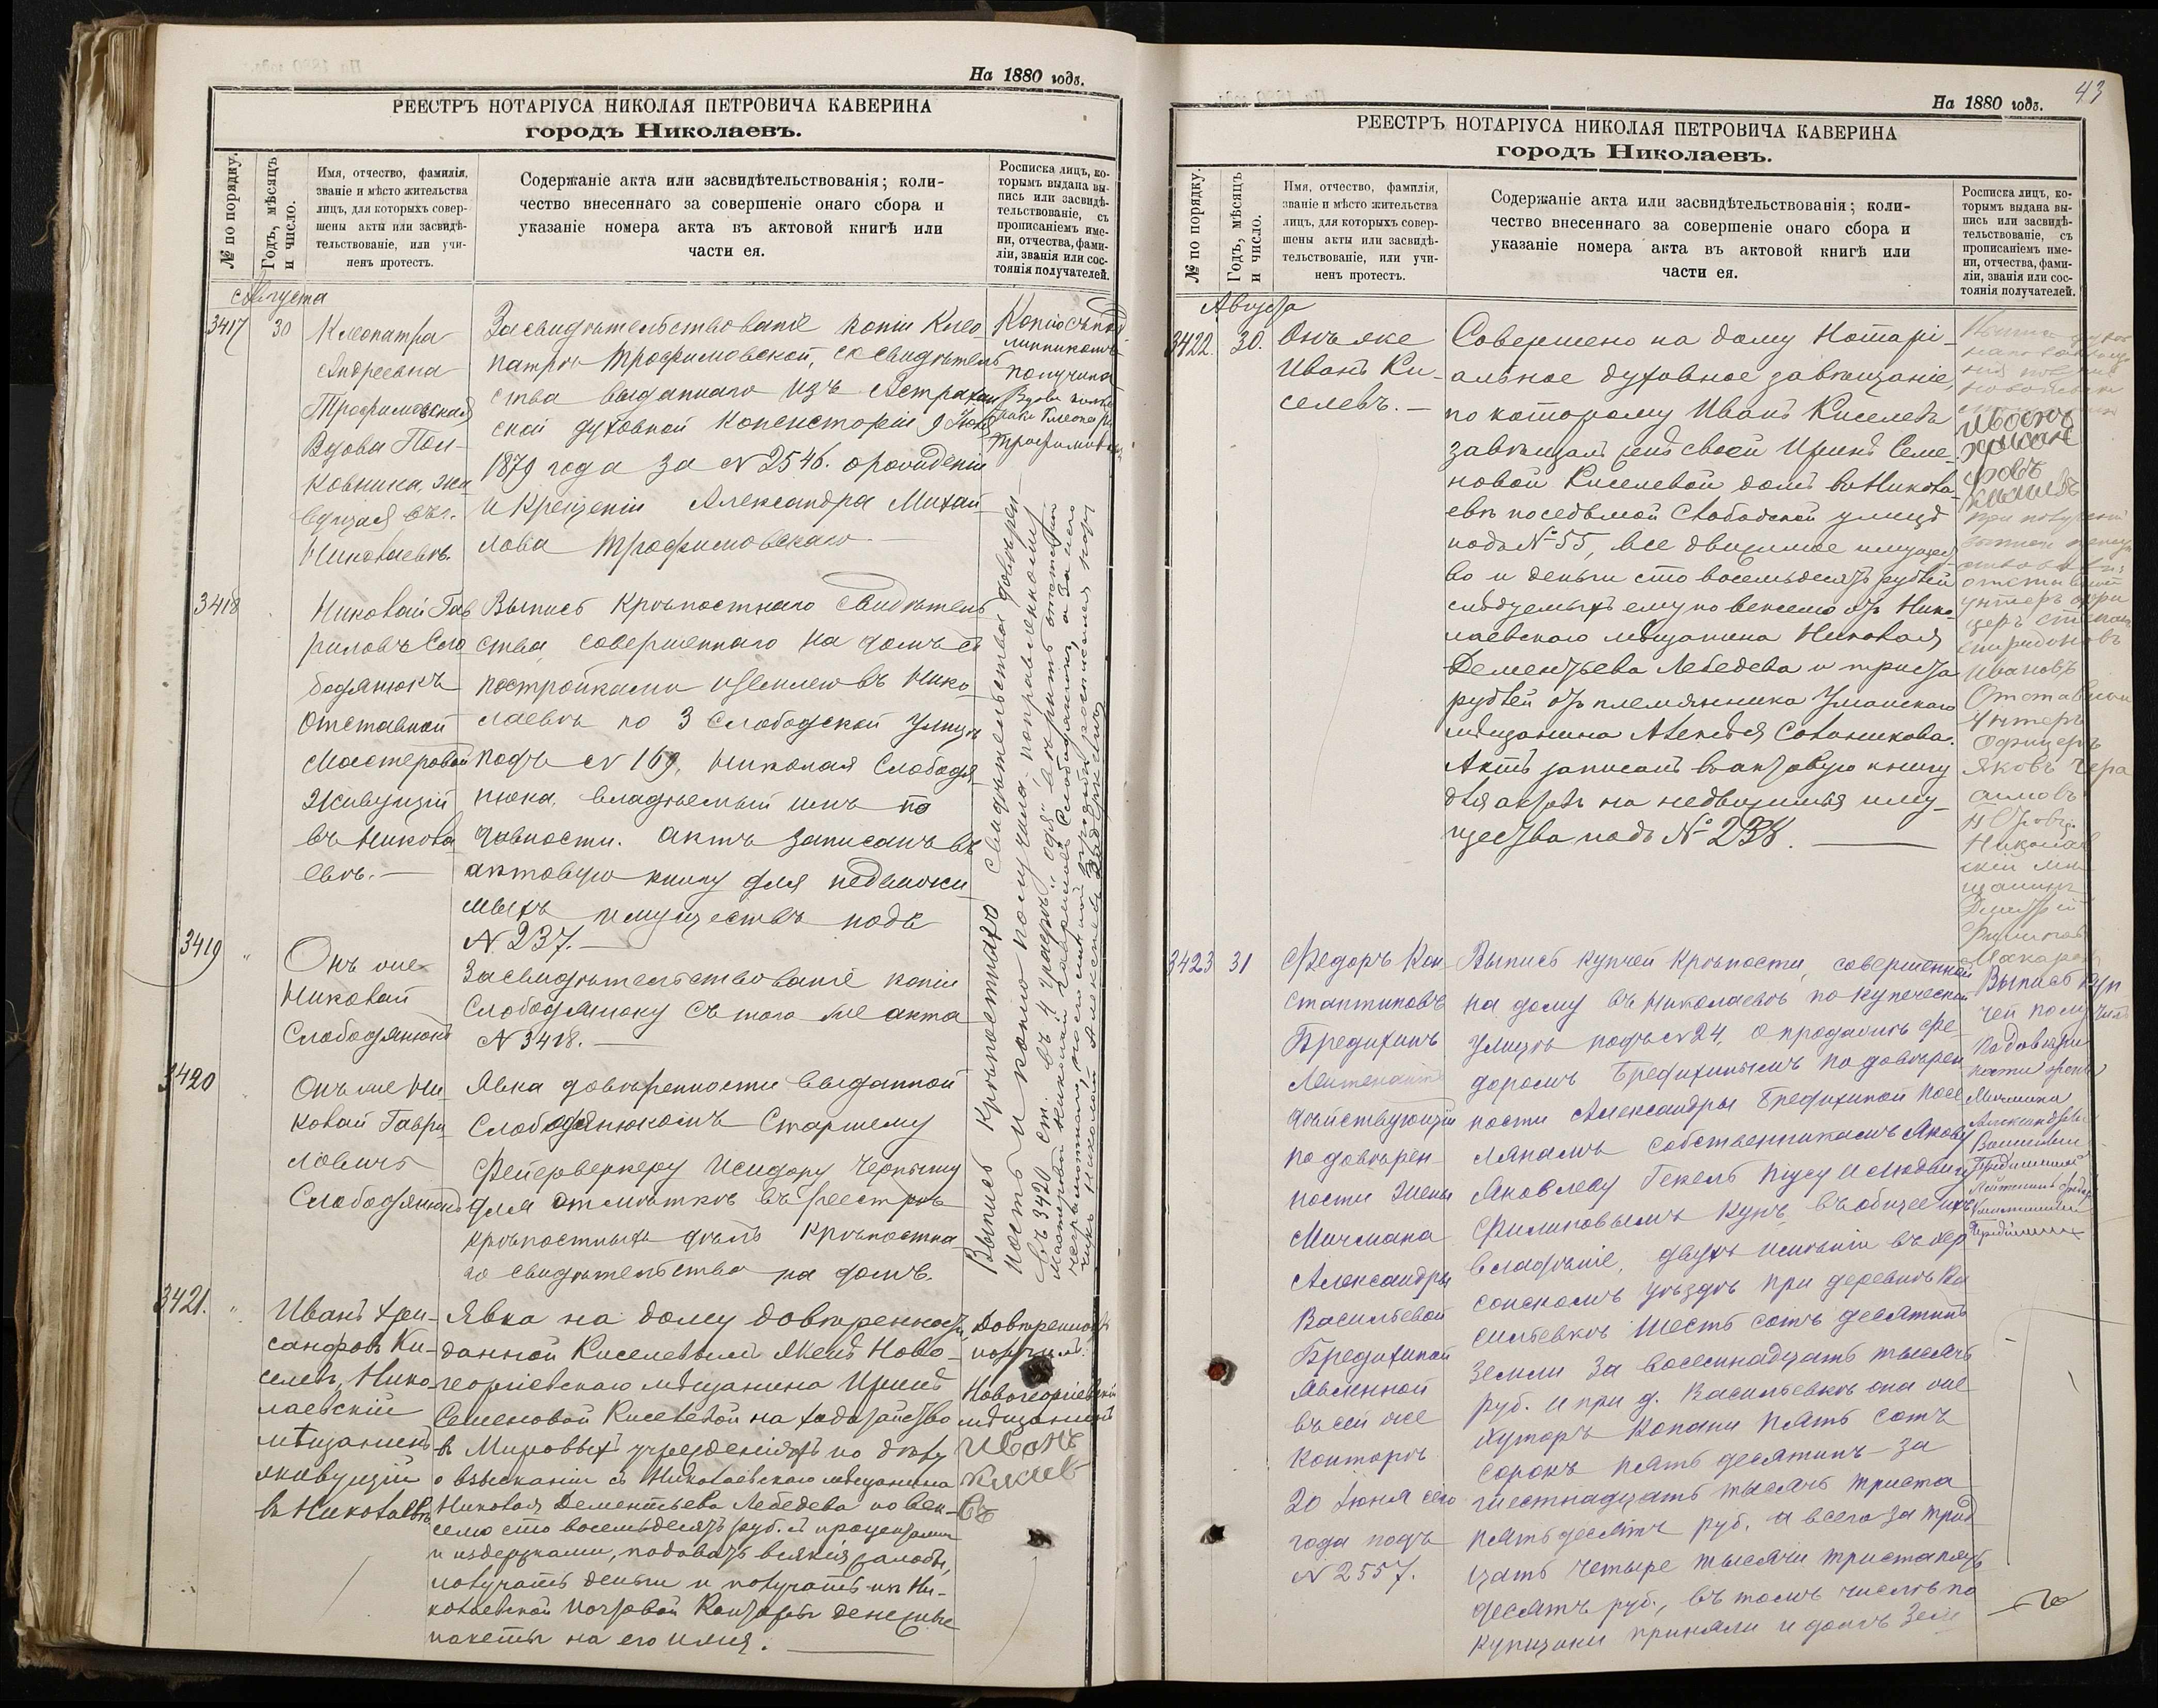 На 1880 годъ.
РЕЕСТРЪ НОТАРІУСА НИКОЛАЯ ПЕТРОВИЧА КАВЕРИНА
городъ Николаевъ.
№ по порядку.
Годъ, мѣсяцъ
и число.
Имя, отчество, фамилія,
званіе и мѣсто жительства
лицъ, для которыхъ совер-
шены акты или засвидѣ-
тельствованіе, или учи-
ненъ протестъ.
Содержаніе акта или засвидѣтельствованія; коли-
чество внесеннаго за совершеніе онаго сбора и
указаніе номера акта въ актовой книгѣ или
части ея.
Росписка лицъ, ко-
торымъ выдана вы-
пись или засвидѣ-
тельствованіе, съ
прописаніемъ име-
ни, отчества, фами-
ліи, званія или сос-
тоянія получателей.
Августа
3417
30
Клеопатра
Андреевна
Трофимовская
Вдова Пол-
ковника, жи
вущая въ г.
Николаевѣ.
Засвидѣтельствованіе копіи Клео
патрѣ Трофимовской, со свидѣтель
ства выданнаго изъ Астрахан
ской духовной Консисторіи 9 Іюня
1879 года за № 2546. о рожденіи
и крещеніи Александра Михай
лова Трофимовскаго.
Копію съ под
линникомъ
получила
Вдова полко
вника Клеопатра
Трофимовская
3418
Николай Гав
риловъ Сло
бодянюкъ
Отставной
Мастеровой
Живущій
въ Никола
евѣ.—
Выпись крѣпостнаго Свидѣтель
ства, совершеннаго на домъ съ
постройками и землею въ Нико
лаевѣ по 3 Слободской улицѣ
подъ № 169, Николая Слободя
нюка, владѣемый имъ по
давности. Актъ записанъ въ
актовую книгу для недвижи
мыхъ имуществъ подъ
№ 237.—
3419
"
Онъ же
Николай
Слободянюкъ
Засвидѣтельствованіе копіи
Слободянюку съ того же акта
№ 3418.—
3420
Онъ же Ни
колай Гаври
ловичъ
Слободянюкъ
Явка довѣренности выданной
Слободянюкомъ Старшему
Фейерверкеру Исидору Черныму
для отмѣтки въ реестрѣ
крѣпостныхъ дѣлъ крѣпостна
го свидѣтельства на домъ.
Выпись крѣпостнаго свидѣтельства довѣрен-
ность и копію получилъ, поправленному
въ 3420 ст. въ 4 графѣ: "одя" вѣрить отставной
Мастеровой Николай Гавриловъ Слободянюкъ, а за него
3421.
"
Иванъ Хри-
санфовъ Ки-
селевъ, Нико-
лаевскій
мѣщанинъ
живущій
въ Николаевѣ
Явка на дому довѣренности
данной Киселевымъ женѣ Ново-
георгіевскаго мѣщанина Иринѣ
Семеновой Киселевой на ходатайство
въ Мировыхъ учрежденіяхъ по дѣлу
о взысканіи съ Николаевскаго мѣщанина
Николая Дементьева Лебедева по век-
селю сто восемьдесятъ руб. съ процентами
и издержками, подавать всякія жалобы,
получать деньги и получать изъ Ни-
колаевской Почтовой Конторы денежные
пакеты на его имя.
Довѣренность
получилъ
Новогеоргіевскій
мѣщанинъ
Иванъ
Кисиле
въ
43
На 1880 годъ.
РЕЕСТРЪ НОТАРІУСА НИКОЛАЯ ПЕТРОВИЧА КАВЕРИНА
городъ Николаевъ.
№ по порядку.
Годъ, мѣсяцъ
и число.
Имя, отчество, фамилія,
званіе и мѣсто жительства
лицъ, для которыхъ совер-
шены акты или засвидѣ-
тельствованіе, или учи-
ненъ протестъ.
Содержаніе акта или засвидѣтельствованія; коли-
чество внесеннаго за совершеніе онаго сбора и
указаніе номера акта въ актовой книгѣ или
части ея.
Росписка лицъ, ко-
торымъ выдана вы-
пись или засвидѣ-
тельствованіе, съ
прописаніемъ име-
ни, отчества, фами-
ліи, званія или сос-
тоянія получателей.
Августа
3422.
30.
Онъ же
Иванъ Ки-
селевъ.—
Совершено на дому Нотарі-
альное духовное завѣщаніе,
по которому Иванъ Киселевъ
завѣщалъ женѣ своей Иринѣ Семе-
новой Киселевой домъ въ Никола-
евѣ по седьмой Слободской улицѣ
подъ № 55, все движимое имущест
во и деньги сто восемьдесятъ рублей
слѣдуемыхъ ему по векселю отъ Нико-
лаевскаго мѣщанина Николая
Дементьева Лебедева и триста
рублей отъ племянника Уманскаго
мѣщанина Алексѣя Сотникова.
Актъ записанъ въ актовую книгу
для актовъ на недвижимыя иму-
щества подъ № 238.
Иванъ
Хрисанѳ
овъ
Кисилевъ
отставной
унтеръ офи
церъ Степанъ
Спиридоновъ
Ивановъ
Отставной
Унтеръ
Офицеръ
Яковъ
Николаев
скій мѣ
щанинъ
Дмитрій
Макаровъ
3423
31
Федоръ Кон-
стантиновъ
Бредихинъ
Лейтенантъ
дѣйствующій
по довѣрен-
ности жены
Мичмана
Александры
Васильевой
Бредихиной
явленной
въ сей же
конторѣ
20 Іюня сего
года подъ
№ 2557.
Выпись купчей крѣпости, совершенной
на дому въ Николаевѣ по купеческой
улицѣ подъ № 24, о продажѣ Фе-
доромъ Бредихинымъ по довѣрен
ности Александры Бредихиной посе
лянамъ собственникамъ Якову
Яковлеву Гекель Піусу и Людвигу
Филиповымъ Кунъ, въ общее ихъ
владѣніе, двухъ имѣній въ Хер
сонскомъ уѣздѣ при деревнѣ Ва
сильевкѣ шесть сотъ десятинъ
земли за восемнадцать тысячъ
руб. и при д. Васильевкѣ она же
хуторъ Копани пять сотъ
сорокъ пять десятинъ за
шестнадцать тысячъ триста
пятьдесятъ руб. а всего за трид
цать четыре тысячи триста пять
десятъ руб., въ томъ числѣ по
купщики приняли и долгъ Зем
Выпись куп
чей получилъ
по довѣрен
ности жены
Мичмана
Александры
Васильевны
Бредихиной
Лейтенантъ Федоръ
Константиновъ
Бредихинъ